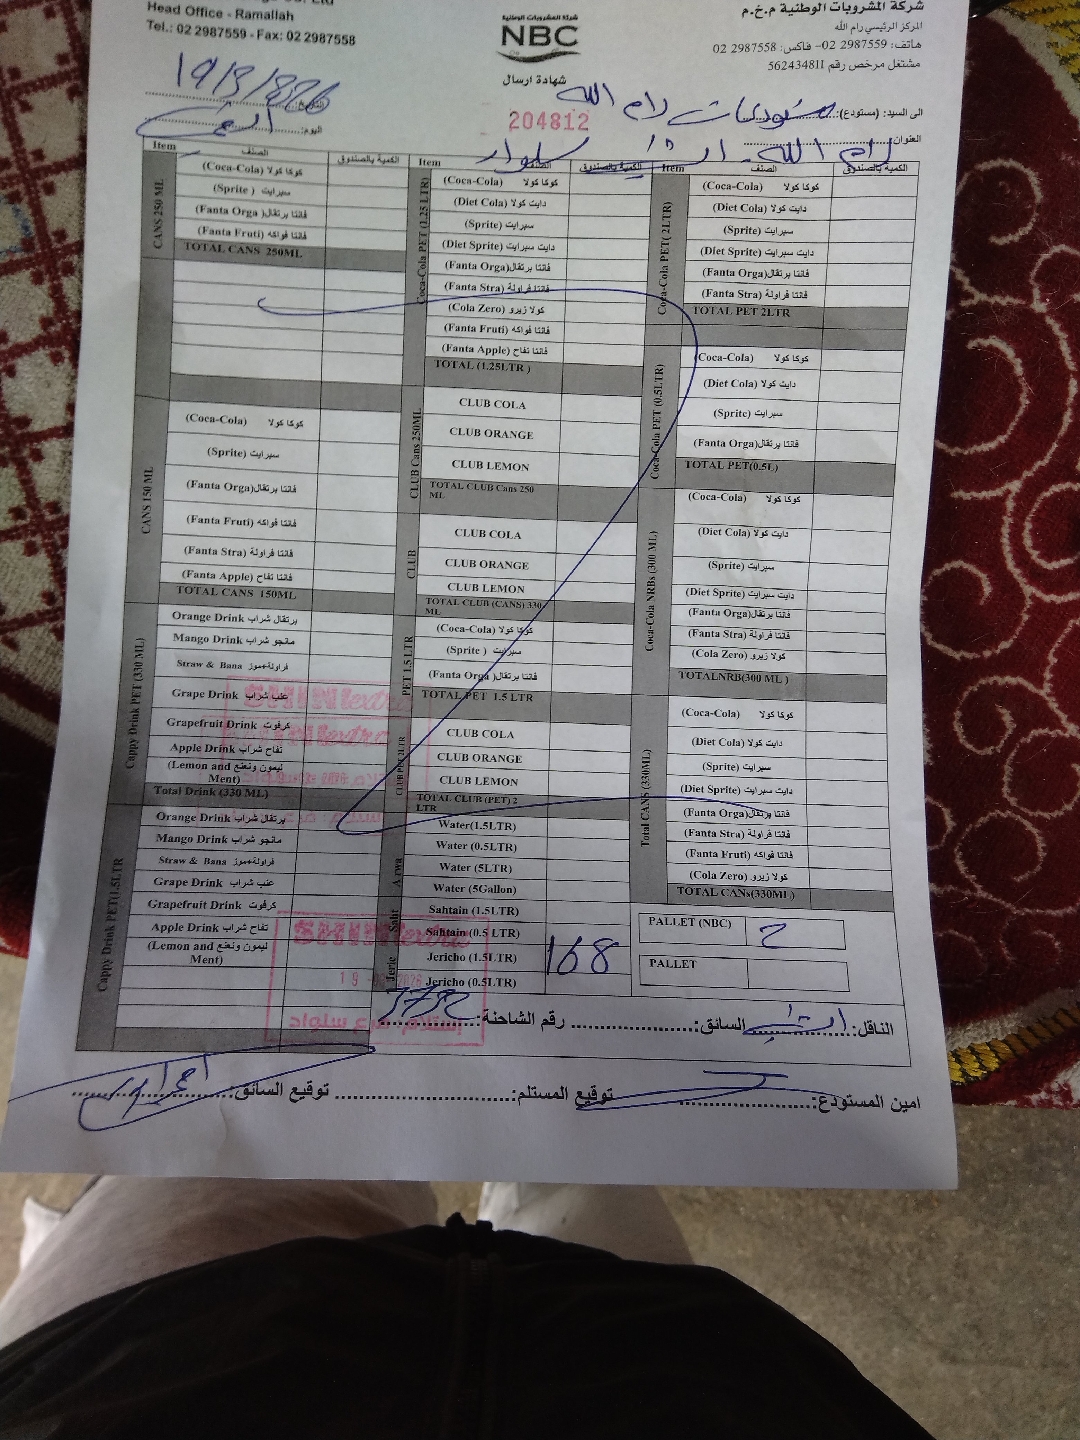 Head Office - Ramallah
Tel.: 02 2987559 - Fax: 02 2987558
شركة المشروبات الوطنية
NBC
شهادة ارسال
204812
شركة المشروبات الوطنية م.خ.م
المركز الرئيسي رام الله
هاتف: 2987559 02– فاكس: 2987558 02
مشتغل مرخص رقم 562434811
19/3/2026
التاريخ:
اليوم:
الى السيد: (مستودع): مستودعات رام الله
العنوان: رام الله - سلواد
Item الصنف الكمية بالصندوق
CANS 250 ML
(Coca-Cola) كوكا كولا
(Sprite) سبرايت
(Fanta Orga) فانتا برتقال
(Fanta Fruti) فانتا فواكه
TOTAL CANS 250ML
CANS 150 ML
(Coca-Cola) كوكا كولا
(Sprite) سبرايت
(Fanta Orga) فانتا برتقال
(Fanta Fruti) فانتا فواكه
(Fanta Stra) فانتا فراولة
(Fanta Apple) فانتا تفاح
TOTAL CANS 150ML
Cappy Drink PET (330 ML)
Orange Drink برتقال شراب
Mango Drink مانجو شراب
Straw & Bana فراولة+موز
Grape Drink عنب شراب
Grapefruit Drink كرفوت
Apple Drink تفاح شراب
(Lemon and Ment) ليمون ونعنع
Total Drink (330 ML)
Cappy Drink PET(1.5LTR
Orange Drink برتقال شراب
Mango Drink مانجو شراب
Straw & Bana فراولة+موز
Grape Drink عنب شراب
Grapefruit Drink كرفوت
Apple Drink تفاح شراب
(Lemon and Ment) ليمون ونعنع
Item الصنف الكمية بالصندوق
Coca-Cola PET (1.25 LTR)
(Coca-Cola) كوكا كولا
(Diet Cola) دايت كولا
(Sprite) سبرايت
(Diet Sprite) دايت سبرايت
(Fanta Orga) فانتا برتقال
(Fanta Stra) فانتا فراولة
(Cola Zero) كولا زيرو
(Fanta Fruti) فانتا فواكه
(Fanta Apple) فانتا تفاح
TOTAL (1.25LTR )
CLUB Cans 250ML
CLUB COLA
CLUB ORANGE
CLUB LEMON
TOTAL CLUB Cans 250 ML
CLUB
CLUB COLA
CLUB ORANGE
CLUB LEMON
TOTAL CLUB (CANS) 330 ML
PET 1.5 LTR
(Coca-Cola) كوكا كولا
(Sprite ) سبرايت
(Fanta Orga) فانتا برتقال
TOTAL PET 1.5 LTR
CLUB PET 2LTR
CLUB COLA
CLUB ORANGE
CLUB LEMON
TOTAL CLUB (PET) 2 LTR
Arwa
Water(1.5LTR)
Water (0.5LTR)
Water (5LTR)
Water (5Gallon)
Saht
Sahtain (1.5LTR)
Sahtain (0.5 LTR)
Jeric
Jericho (1.5LTR) 168
Jericho (0.5LTR)
Item الصنف الكمية بالصندوق
Coca-Cola PET( 2LTR)
(Coca-Cola) كوكا كولا
(Diet Cola) دايت كولا
(Sprite) سبرايت
(Diet Sprite) دايت سبرايت
(Fanta Orga) فانتا برتقال
(Fanta Stra) فانتا فراولة
TOTAL PET 2LTR
Coca-Cola PET (0.5LTR)
(Coca-Cola) كوكا كولا
(Diet Cola) دايت كولا
(Sprite) سبرايت
(Fanta Orga) فانتا برتقال
TOTAL PET(0.5L)
Coca-Cola NRBs (300 ML)
(Coca-Cola) كوكا كولا
(Diet Cola) دايت كولا
(Sprite) سبرايت
(Diet Sprite) دايت سبرايت
(Fanta Orga) فانتا برتقال
(Fanta Stra) فانتا فراولة
(Cola Zero) كولا زيرو
TOTALNRB(300 ML )
Total CANS (330ML)
(Coca-Cola) كوكا كولا
(Diet Cola) دايت كولا
(Sprite) سبرايت
(Diet Sprite) دايت سبرايت
(Fanta Orga) فانتا برتقال
(Fanta Stra) فانتا فراولة
(Fanta Fruti) فانتا فواكه
(Cola Zero) كولا زيرو
TOTAL CANs(330ML)
PALLET (NBC) 2
PALLET
SHINI extra
استلام فرع سلواد
الناقل: السائق: رقم الشاحنة:
امين المستودع: توقيع المستلم: توقيع السائق: